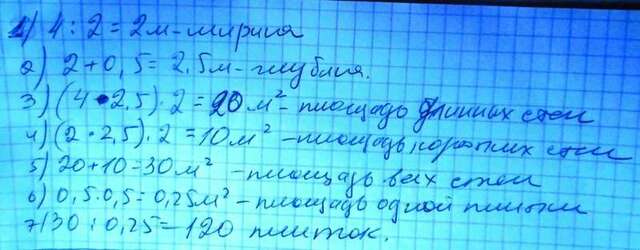 1) 4 : 2 = 2м - ширина
2) 2 + 0,5 = 2,5м - глубина.
3) (4 • 2,5) · 2 = 20 м² - площадь длинных стен
4) (2 · 2,5) · 2 = 10 м² - площадь коротких стен
5) 20 + 10 = 30 м² - площадь всех стен
6) 0,5 · 0,5 = 0,25м² - площадь одной плитки
7) 30 : 0,25 = 120 плиток.